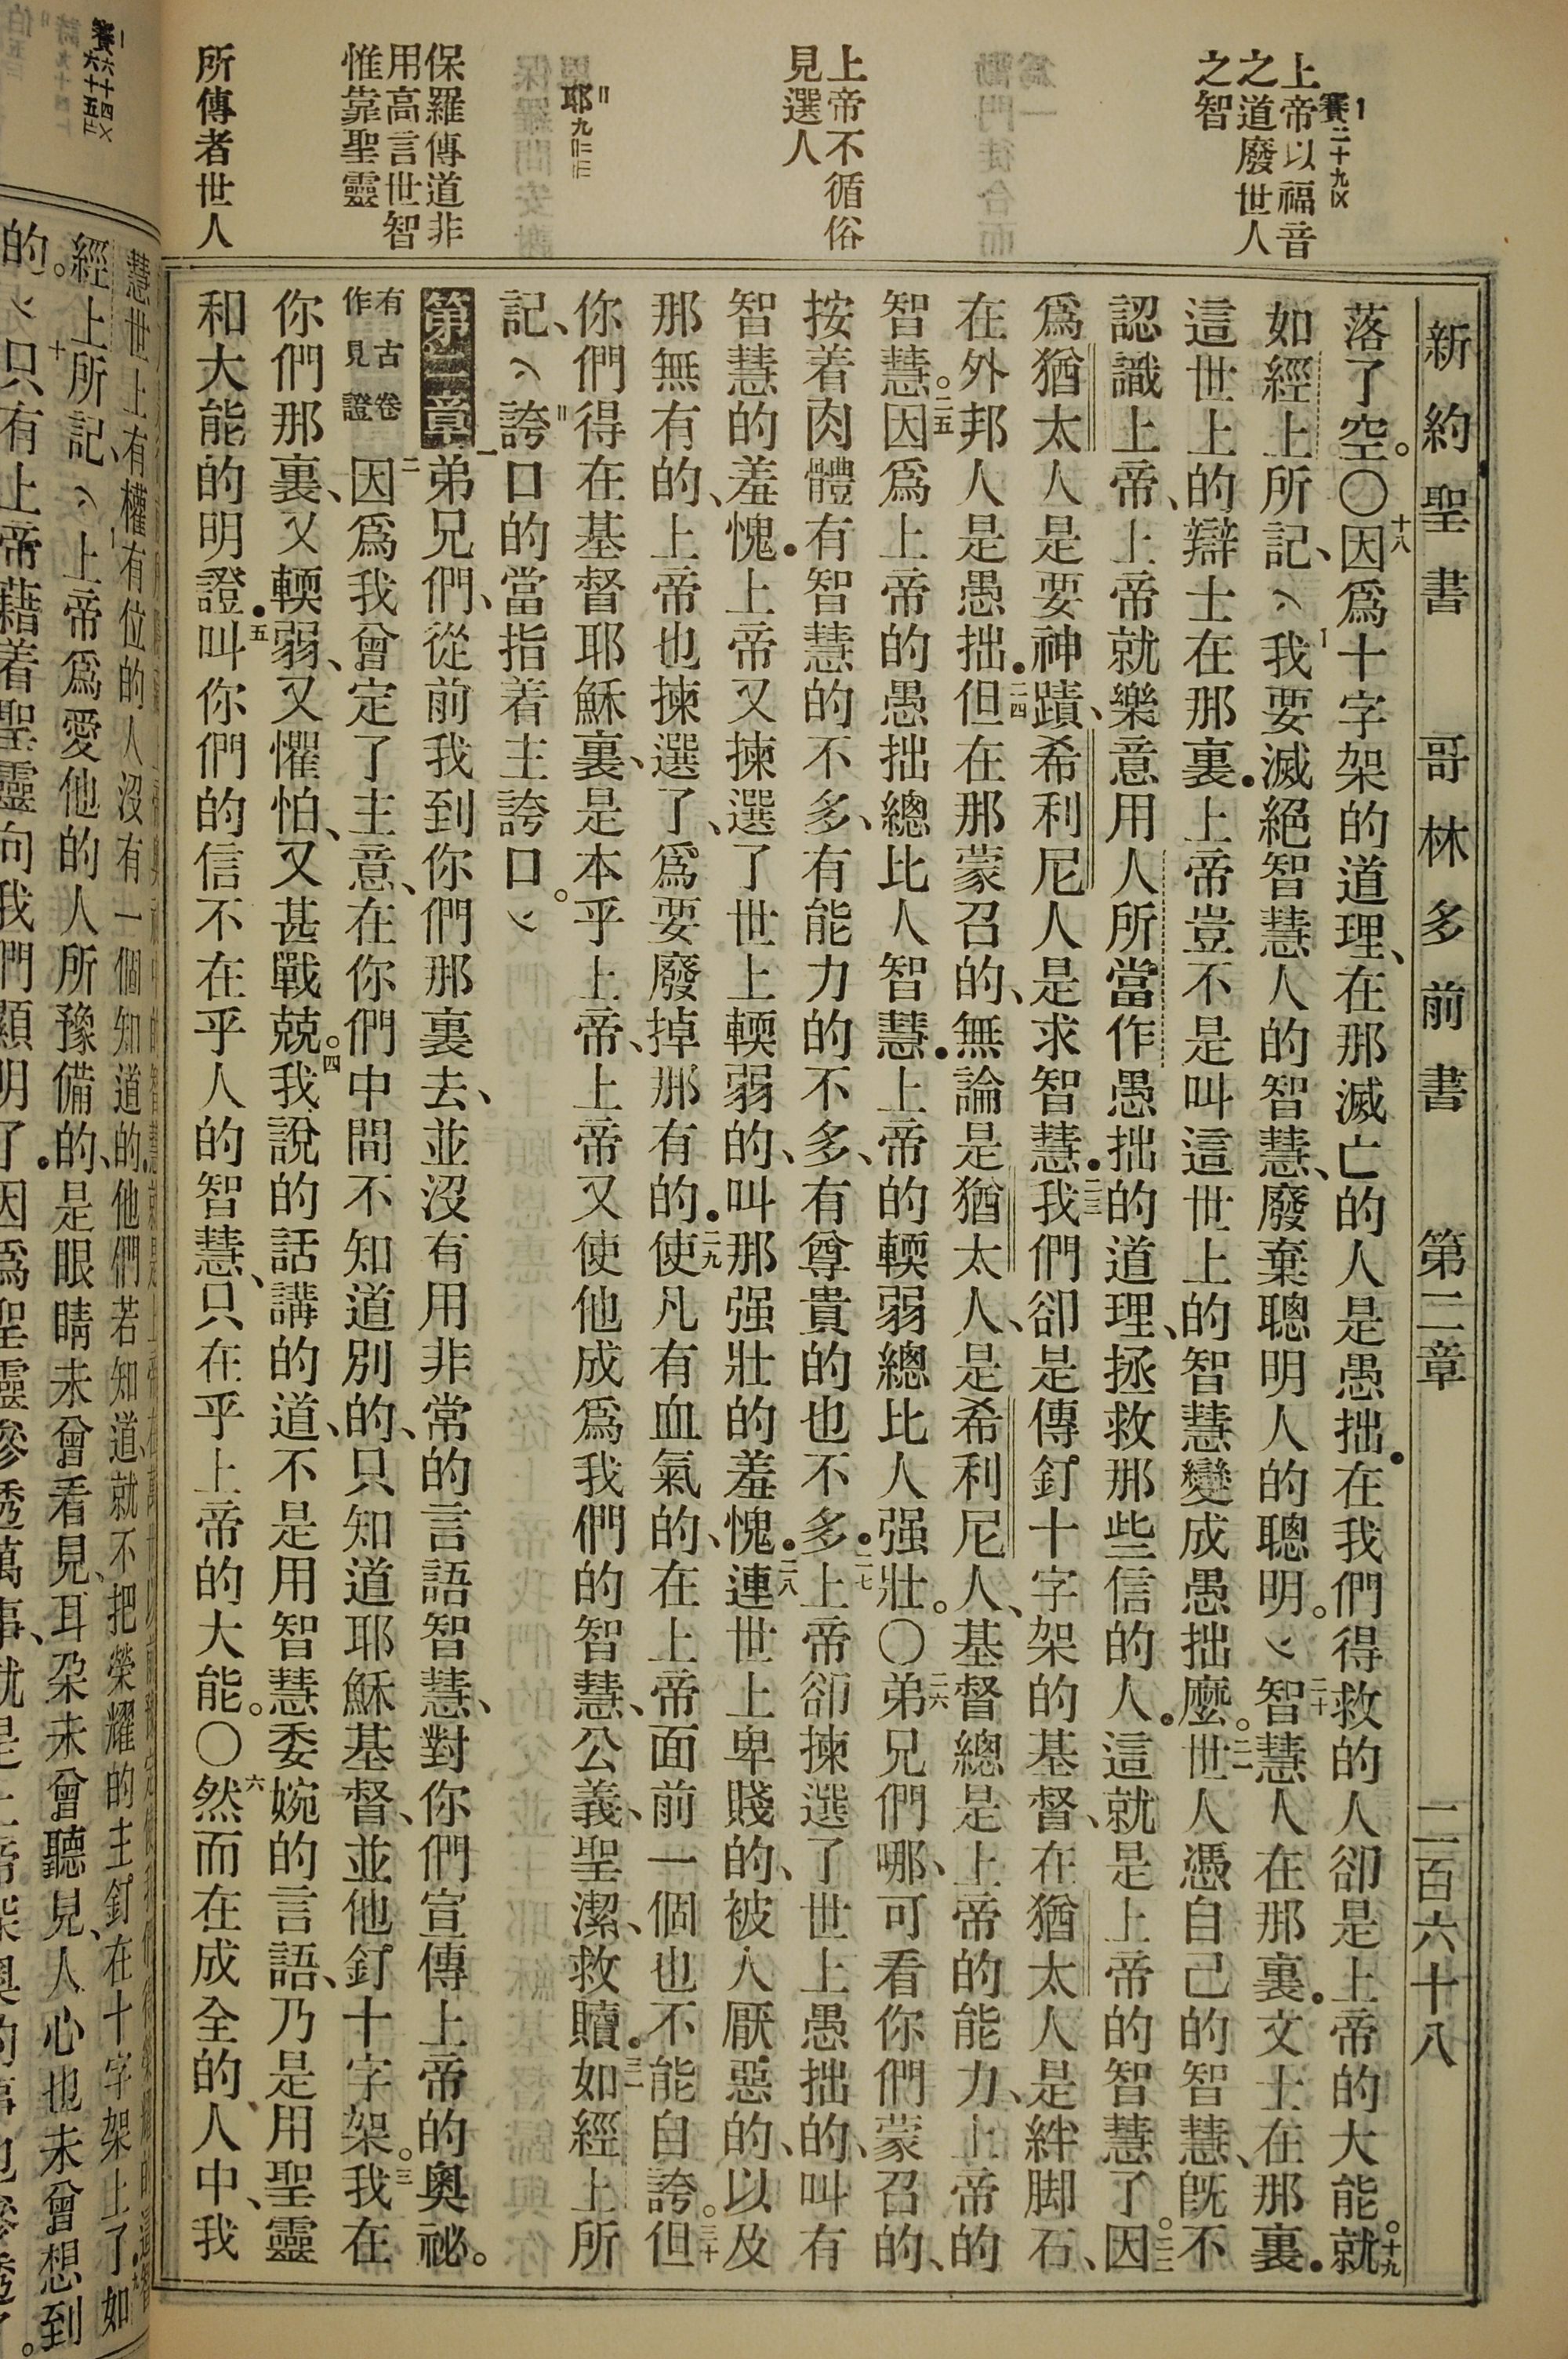 新約聖書 哥林多前書 第二章 二百六十八
一賽二十九
上帝以福音
之道廢世人
之智
上帝不循俗
見選人
二耶九
保羅傳道非
用高言世智
惟靠聖靈
所傳者世人
落了空。〇十八因爲十字架的道理、在那滅亡的人是愚拙．在我們得救的人卻是上帝的大能。十九就
如經上所記、我要滅絕智慧人的智慧、廢棄聰明人的聰明。二十智慧人在那裏．文士在那裏．
這世上的辯士在那裏．上帝豈不是叫這世上的智慧變成愚拙麽。二一世人憑自己的智慧、旣不
認識上帝、上帝就樂意用人所當作愚拙的道理、拯救那些信的人．這就是上帝的智慧了。二二因
爲猶太人是要神蹟、希利尼人是求智慧．二三我們卻是傳釘十字架的基督、在猶太人是絆脚石、
在外邦人是愚拙．二四但在那蒙召的、無論是猶太人、是希利尼人、基督總是上帝的能力、上帝的
智慧。二五因爲上帝的愚拙總比人智慧．上帝的輭弱總比人强壯。〇二六弟兄們哪、可看你們蒙召的、
按着肉體有智慧的不多、有能力的不多、有尊貴的也不多．二七上帝卻揀選了世上愚拙的、叫有
智慧的羞愧．上帝又揀選了世上輭弱的、叫那强壯的羞愧．二八連世上卑賤的、被人厭惡的、以及
那無有的、上帝也揀選了、爲要廢掉那有的．二九使凡有血氣的、在上帝面前一個也不能自誇。三十但
你們得在基督耶穌裏、是本乎上帝、上帝又使他成爲我們的智慧、公義、聖潔、救贖．三一如經上所
記、誇口的當指着主誇口。
第二章 一弟兄們、從前我到你們那裏去、並沒有用非常的言語智慧、對你們宣傳上帝的奧祕。
有古卷作見證 二因爲我曾定了主意、在你們中間不知道別的、只知道耶穌基督、並他釘十字架。三我在
你們那裏、又輭弱、又懼怕、又甚戰兢。四我說的話講的道、不是用智慧委婉的言語、乃是用聖靈
和大能的明證．五叫你們的信不在乎人的智慧、只在乎上帝的大能。〇六然而在成全的人中、我
一賽六十四
六十五
慧世上有權有位的人沒有一個知道的．他們若知道、就不把榮耀的主釘在十字架上了．九如
經上所記、上帝爲愛他的人所豫備的、是眼睛未曾看見、耳朶未曾聽見、人心也未曾想到
的。十只有上帝藉着聖靈向我們顯明了．因爲聖靈參透萬事、就是上帝深奧的事也參透了。